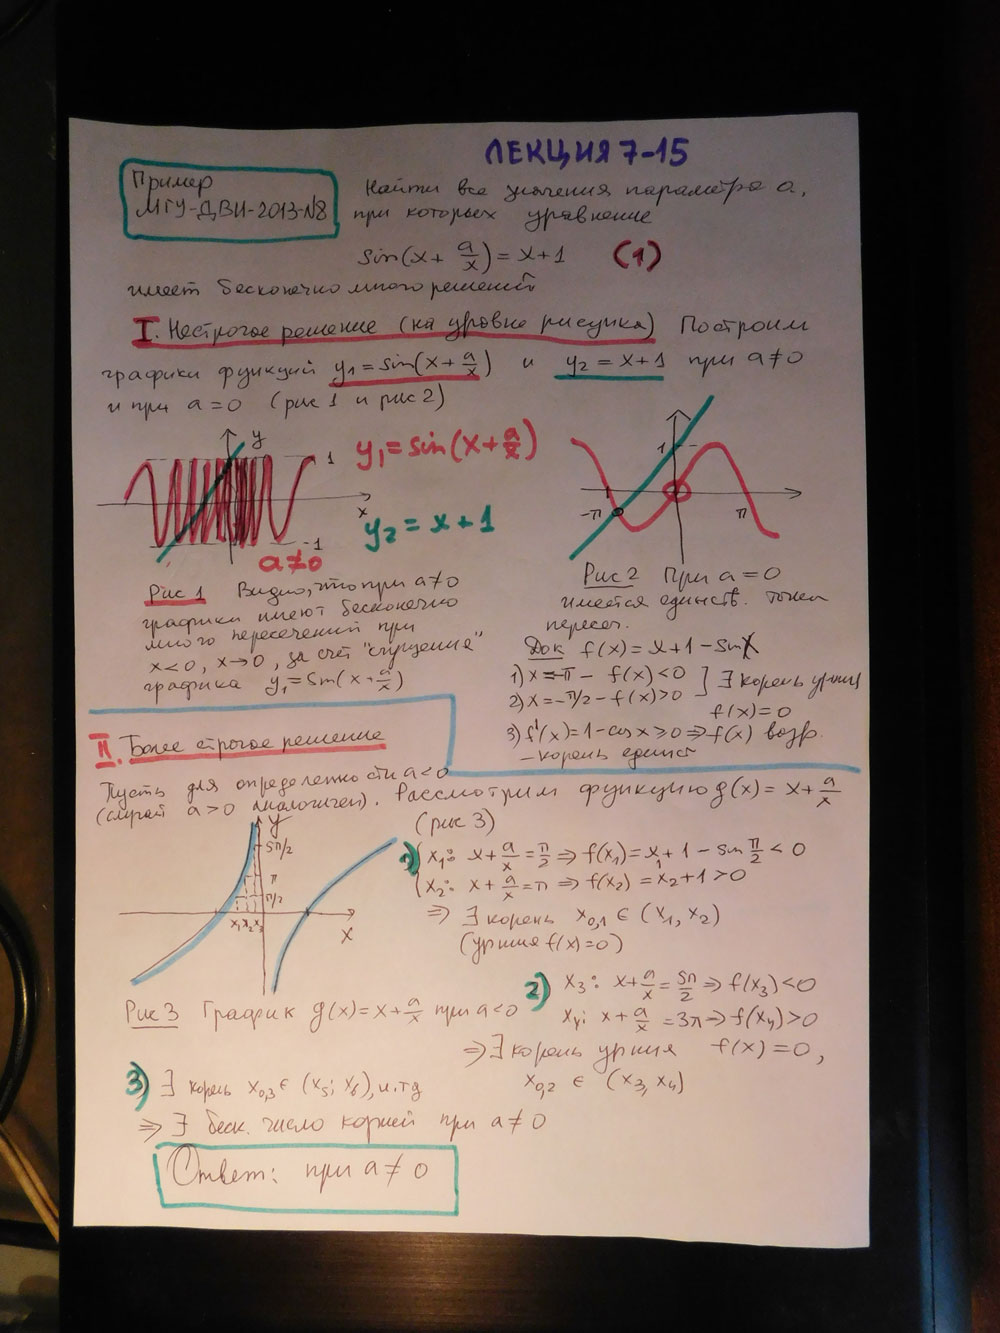 ЛЕКЦИЯ 7-15
Пример
МГУ-ДВИ-2013-№8
Найти все значения параметра a,
при которых уравнение
sin(x + a/x) = x+1 (1)
имеет бесконечно много решений
I. Нестрогое решение (на уровне рисунка) Построим
графики функций y₁ = sin(x + a/x) и y₂ = x+1 при a≠0
и при a=0 (рис 1 и рис 2)
y
1
x
-1
a≠0
y₁ = sin(x + a/x)
y₂ = x + 1
1
-π
π
Рис 1 Видно, что при a≠0
графики имеют бесконечно
много пересечений при
x<0, x→0, за счёт "сгущения"
графика y₁ = sin(x + a/x)
Рис 2 При a = 0
имеется единств. точка
пересеч.
Док f(x) = x+1 - sin x
1) x = -π - f(x)<0
2) x = -π/2 - f(x)>0 ] ∃ корень ур-ния
f(x)=0
3) f'(x) = 1 - cos x ≥ 0 ⇒ f(x) возр.
- корень единст
II. Более строгое решение
Пусть для определенности a<0
(случай a>0 аналогичен). Рассмотрим функцию g(x) = x + a/x
(рис 3)
y
5π/2
π
π/2
x₁ x₂ x₃
x
1) (x₁: x + a/x = π/2 ⇒ f(x₁) = x₁ + 1 - sin π/2 < 0
(x₂: x + a/x = π ⇒ f(x₂) = x₂+1 >0
⇒ ∃ корень x₀,₁ ∈ (x₁, x₂)
(ур-ния f(x)=0)
Рис 3 График g(x) = x + a/x при a<0
2) x₃: x + a/x = 5π/2 ⇒ f(x₃)<0
x₄: x + a/x = 3π ⇒ f(x₄)>0
⇒ ∃ корень ур-ния f(x) = 0,
x₀,₂ ∈ (x₃, x₄)
3) ∃ корень x₀,₃ ∈ (x₅; x₆), и.тд
⇒ ∃ беск. число корней при a≠0
Ответ: при a ≠ 0